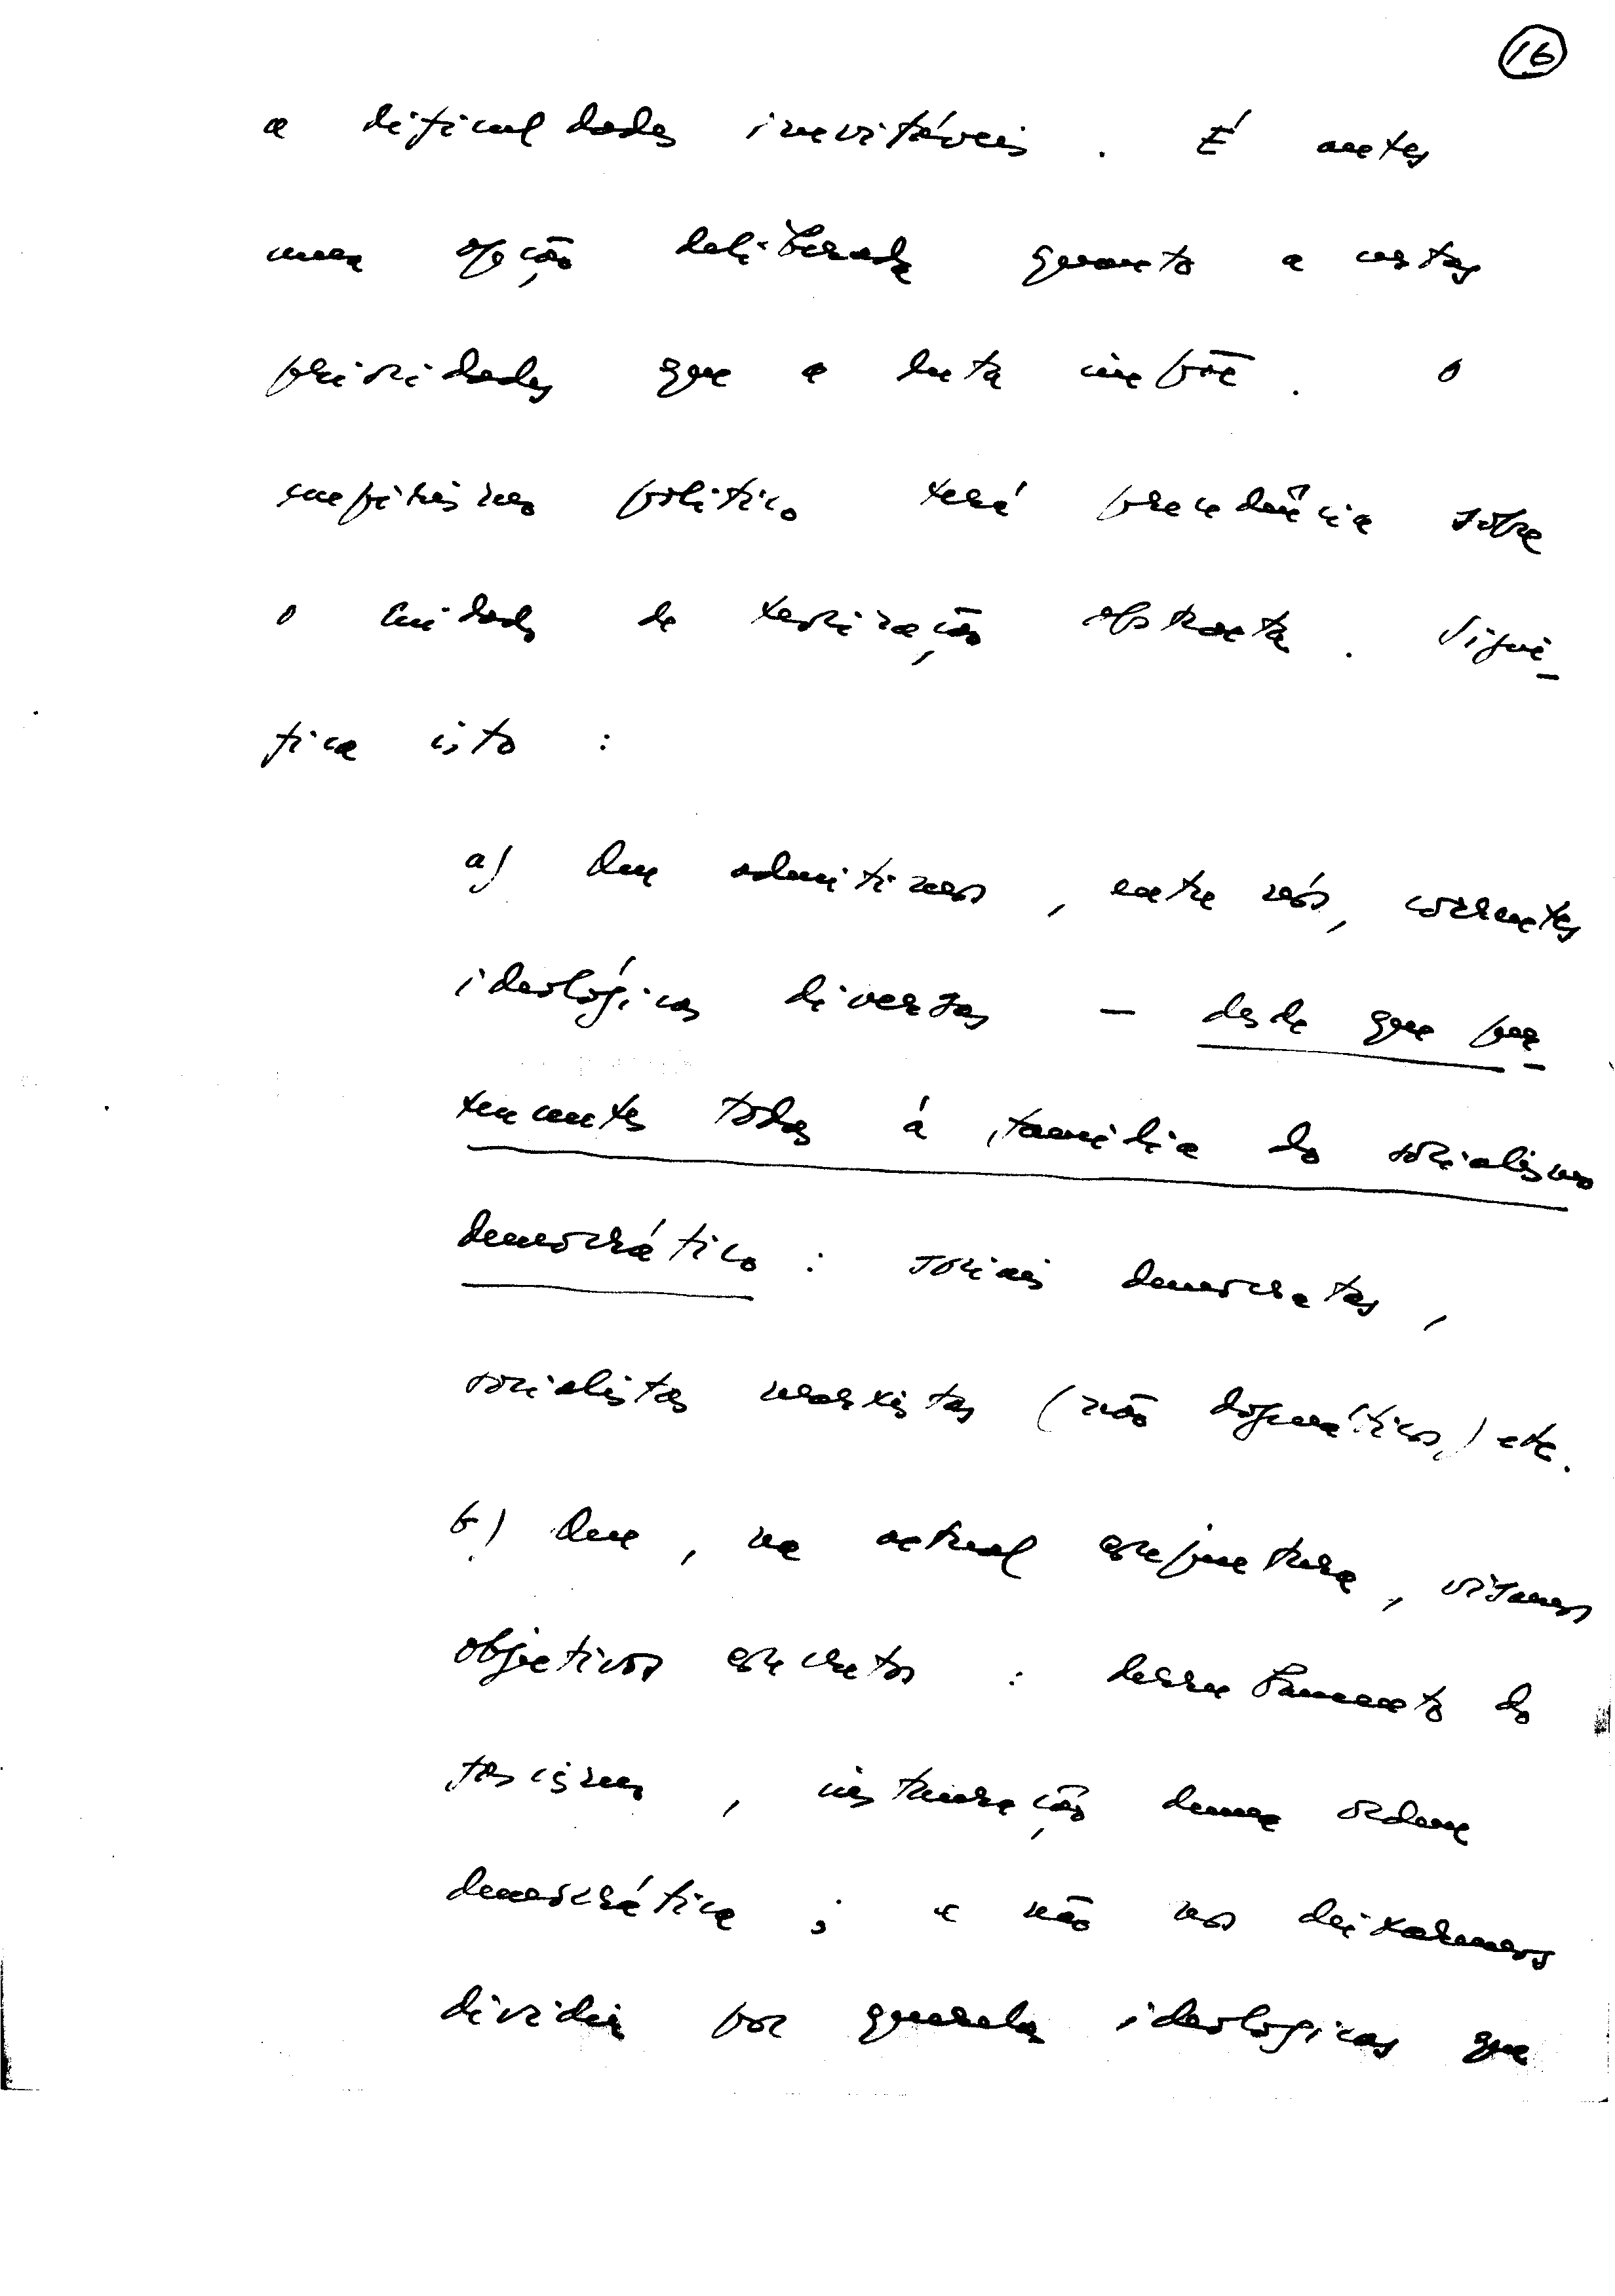 16
a dificuldades inevitáveis. É antes
uma opção deliberada quanto a certas
prioridades que a luta impõe. O
empirismo político terá precedência sobre
o cuidado de teorização abstracta. Signi-
fica isto:
a) Que admitimos, entre nós, correntes
ideológicas diversas — desde que per-
tencentes todas á familia do socialismo
democrático: sociais democratas,
socialistas marxistas (não dogmáticos) etc.
b) Que, na actual conjuntura, visamos
objectivos concretos: derrubamento do
fascismo, instauração duma ordem
democrática; e não nos deixaremos
dividir por querelas ideologicas que